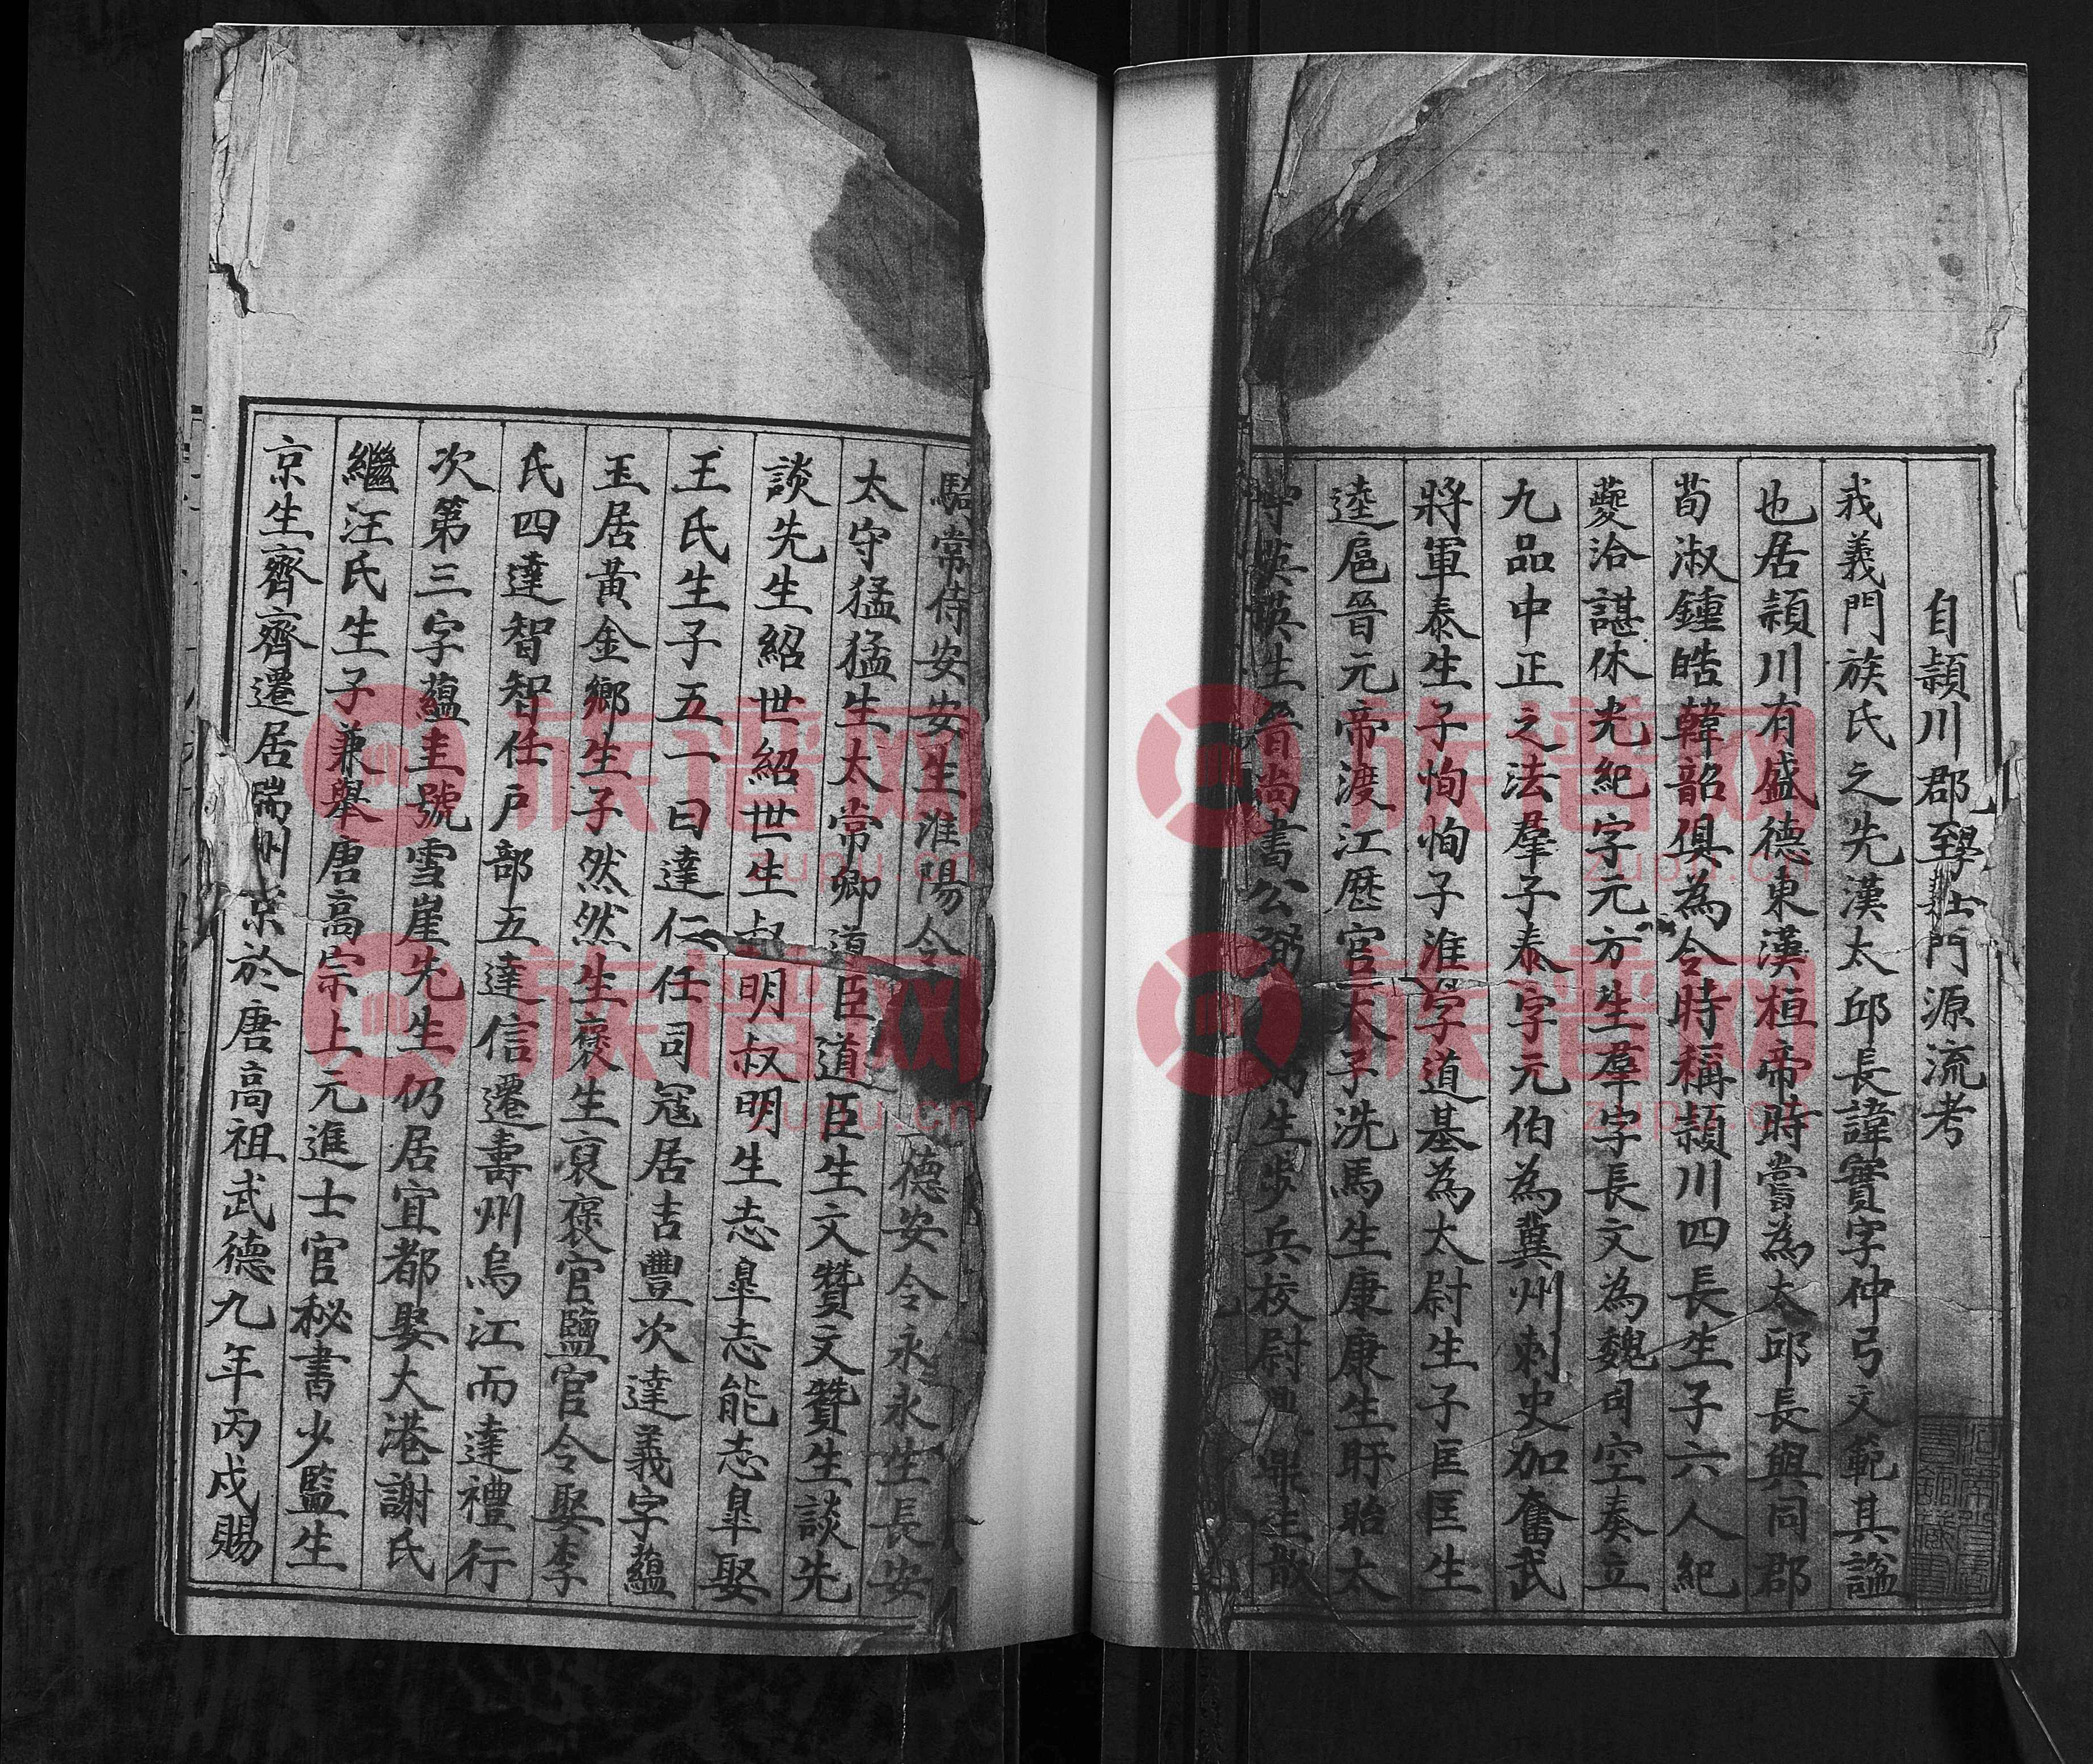 自頴川郡至學士義門源流考
我義門族氏之先漢太邱長諱實字仲弓文範其諡
也居頴川有盛德東漢桓帝時嘗為太邱長與同郡
荀淑鍾皓韓韶俱為令時稱頴川四長生子六人紀
夔洽諶休光紀字元方生羣字長文為魏司空奏立
九品中正之法羣子泰字元伯為冀州刺史加奮武
將軍泰生子恂恂子淮字道基為太尉生子匡匡生
逵扈晉元帝渡江歴官太子洗馬生康康生盱眙太
守英英生尚書公弼生步兵校尉鼎鼎生散
騎常侍安安生淮陽令德安令永永生長安
太守猛猛生太常卿道臣道臣生文贊文贊生談先
談先生紹世紹世生叔明叔明生志臯志能志臯娶
王氏生子五一曰達仁任司冦居吉豐次達義字藴
玉居黃金鄉生子然然生褒生裒褒官鹽官令娶李
氏四達智智任户部五達信遷壽州烏江而達禮行
次第三字藴圭號雪崖先生仍居宜都娶大港謝氏
繼汪氏生子兼舉唐高宗上元進士官秘書少監生
京生齊齊遷居瑞州京於唐高祖武德九年丙戌賜
族谱网
zupu.cn
族谱网
zupu.cn
族谱网
zupu.cn
族谱网
zupu.cn